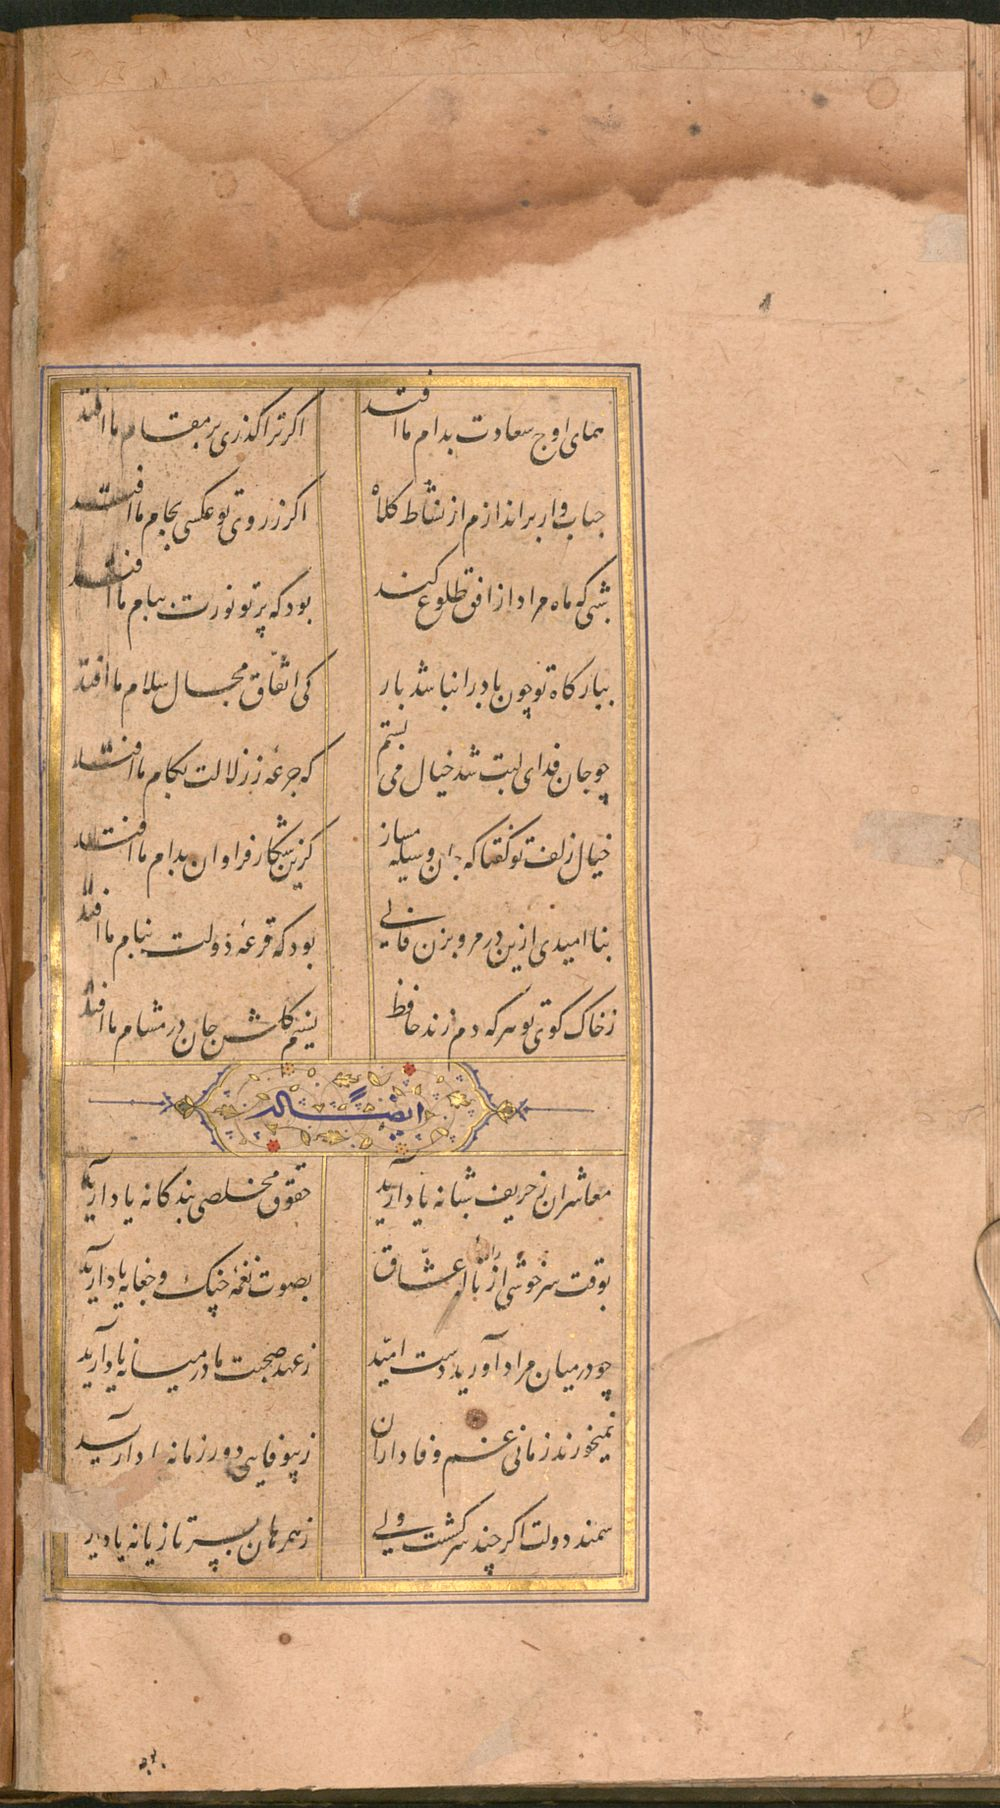 همای اوج سعادت بدام ما افتد اگر ترا گذری بر مقام ما افتد
حباب وار براندازم از نشاط کلاه اگر ز روی تو عکسی بجام ما افتد
شبی که ماه مراد از افق طلوع کند بود که پرتو نورت ببام ما افتد
ببارگاه تو چون باد را نباشد بار کی اتفاق مجال سلام ما افتد
چو جان فدای لبت شد خیال می بستم که جرعه ز زلالت بکام ما افتد
خیال زلف تو گفتا که جان وسیله مساز کزین شکار فراوان بدام ما افتد
بناامیدی ازین در مرو بزن فالی بود که قرعه دولت بنام ما افتد
ز خاک کوی تو هرکه دم زند حافظ نسیم گلشن جان در مشام ما افتد
ایضاً له
معاشران ز حریف شبانه یاد آرید حقوق مخلصی بندگانه یاد آرید
بوقت سرخوشی از ناله عشاق بصوت نغمه چنگ و چغانه یاد آرید
چو در میان مراد آورید دست امید ز عهد صحبت ما در میانه یاد آرید
نمیخورند زمانی غم وفاداران ز بیوفایی دور زمانه یاد آرید
سمند دولت اگر چند سرکشست ولی ز همرهان بسر تازیانه یاد آرید